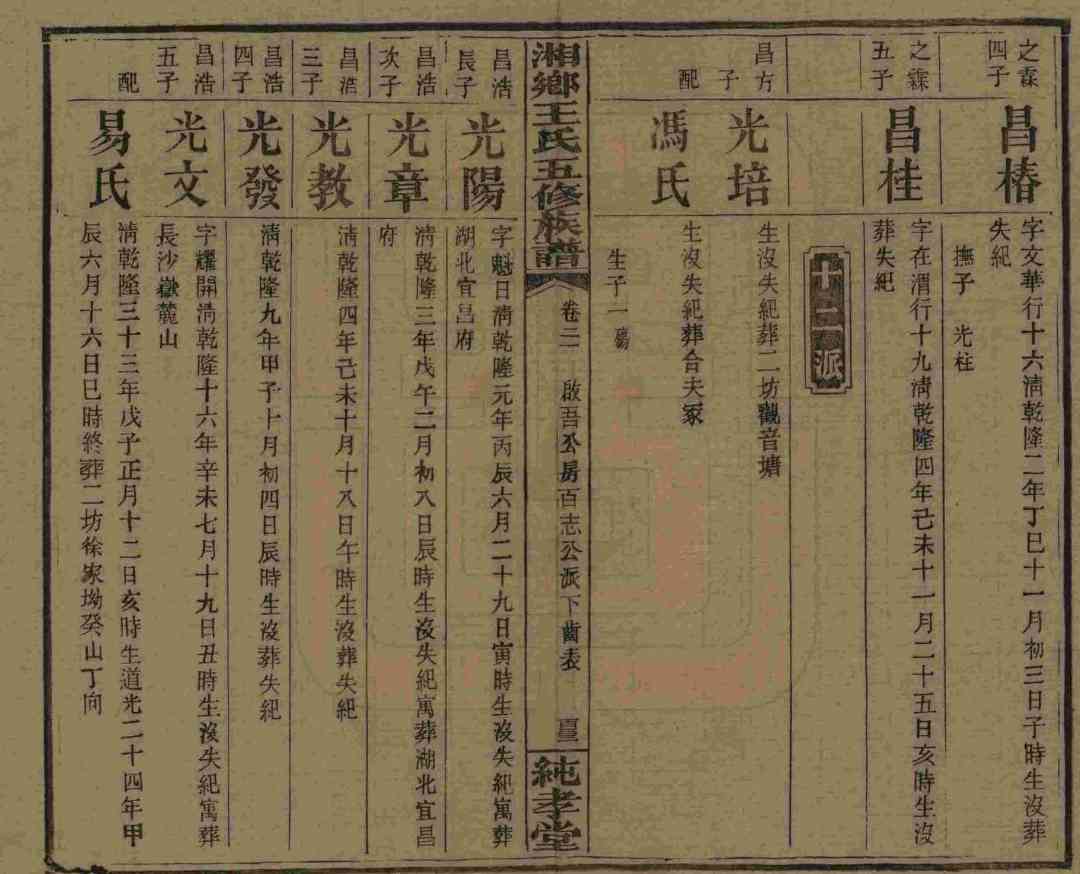 之霖
四子
昌椿
字文華行十六淸乾隆二年丁巳十一月初三日子時生沒葬
失紀
撫子 光柱
之霖
五子
昌桂
字在渭行十九淸乾隆四年己未十一月二十五日亥時生沒
葬失紀
派
昌方
子
光培
生沒失紀葬二坊觀音塘
配
馮氏
生沒失紀葬合夫冢
生子一 殤
湘鄉王氏五修族譜
卷二
啟吾公房百志公派下齒表
純孝堂
昌浩
長子
光陽
字魁日淸乾隆元年丙辰六月二十九日寅時生沒失紀寓葬
湖北宜昌府
昌浩
次子
光章
淸乾隆三年戊午二月初八日辰時生沒失紀寓葬湖北宜昌
府
昌浩
三子
光教
淸乾隆四年己未十月十八日午時生沒葬失紀
昌浩
四子
光發
淸乾隆九年甲子十月初四日辰時生沒葬失紀
昌浩
五子
光文
字耀開淸乾隆十六年辛未七月十九日丑時生沒失紀寓葬
長沙嶽麓山
配
易氏
淸乾隆三十三年戊子正月十二日亥時生道光二十四年甲
辰六月十六日巳時終葬二坊徐家坳癸山丁向